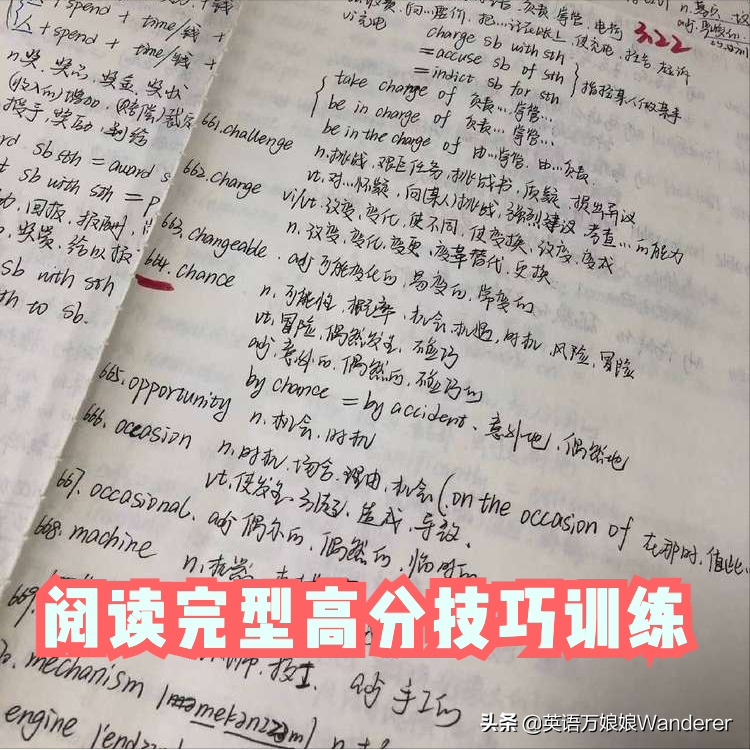 + spend + time/钱 +
+ spend + time/钱 +
n.奖,奖品,奖金,奖状
授予,奖励,判给
ard sb sth = award s
t sb with sth = p
sb with sth
th to sb.
3.22
charge sb with sth
= accuse sb of sth
= indict sb for sth
指控某人做某事
take change of 负责...掌管...
be in charge of 负责...掌管...
be in the charge of 由...掌管,由...负责
661.challenge n.挑战,艰巨任务,挑战书,质疑,提出异议
vt.对...怀疑,向某人挑战,强烈建议,考查...的能力
662.change vi/vt.改变,变化,使不同,使变换,改变,变成
n.改变,变化,变更,变革替代,更换
663.changeable. adj 可能变化的,易变的,常变的
664.chance n.可能性,概率,机会,机遇,时机,风险,冒险
vt.冒险,偶然发生,碰巧
adj.意外的,偶然的,碰巧的
by chance = by accident. 意外地,偶然地
665.opportunity n.机会,时机
666.occasion n.时机,场合,理由,机会(on the occasion of 在那时,值此
vt.使发生,引起,造成,导致.
667.occasional. adj 偶尔的,偶然的,临时的
668.machine n.机器
669.
阅读完型高分技巧训练
mechanism adj 手工的
engine
头条 @英语万娘娘Wanderer